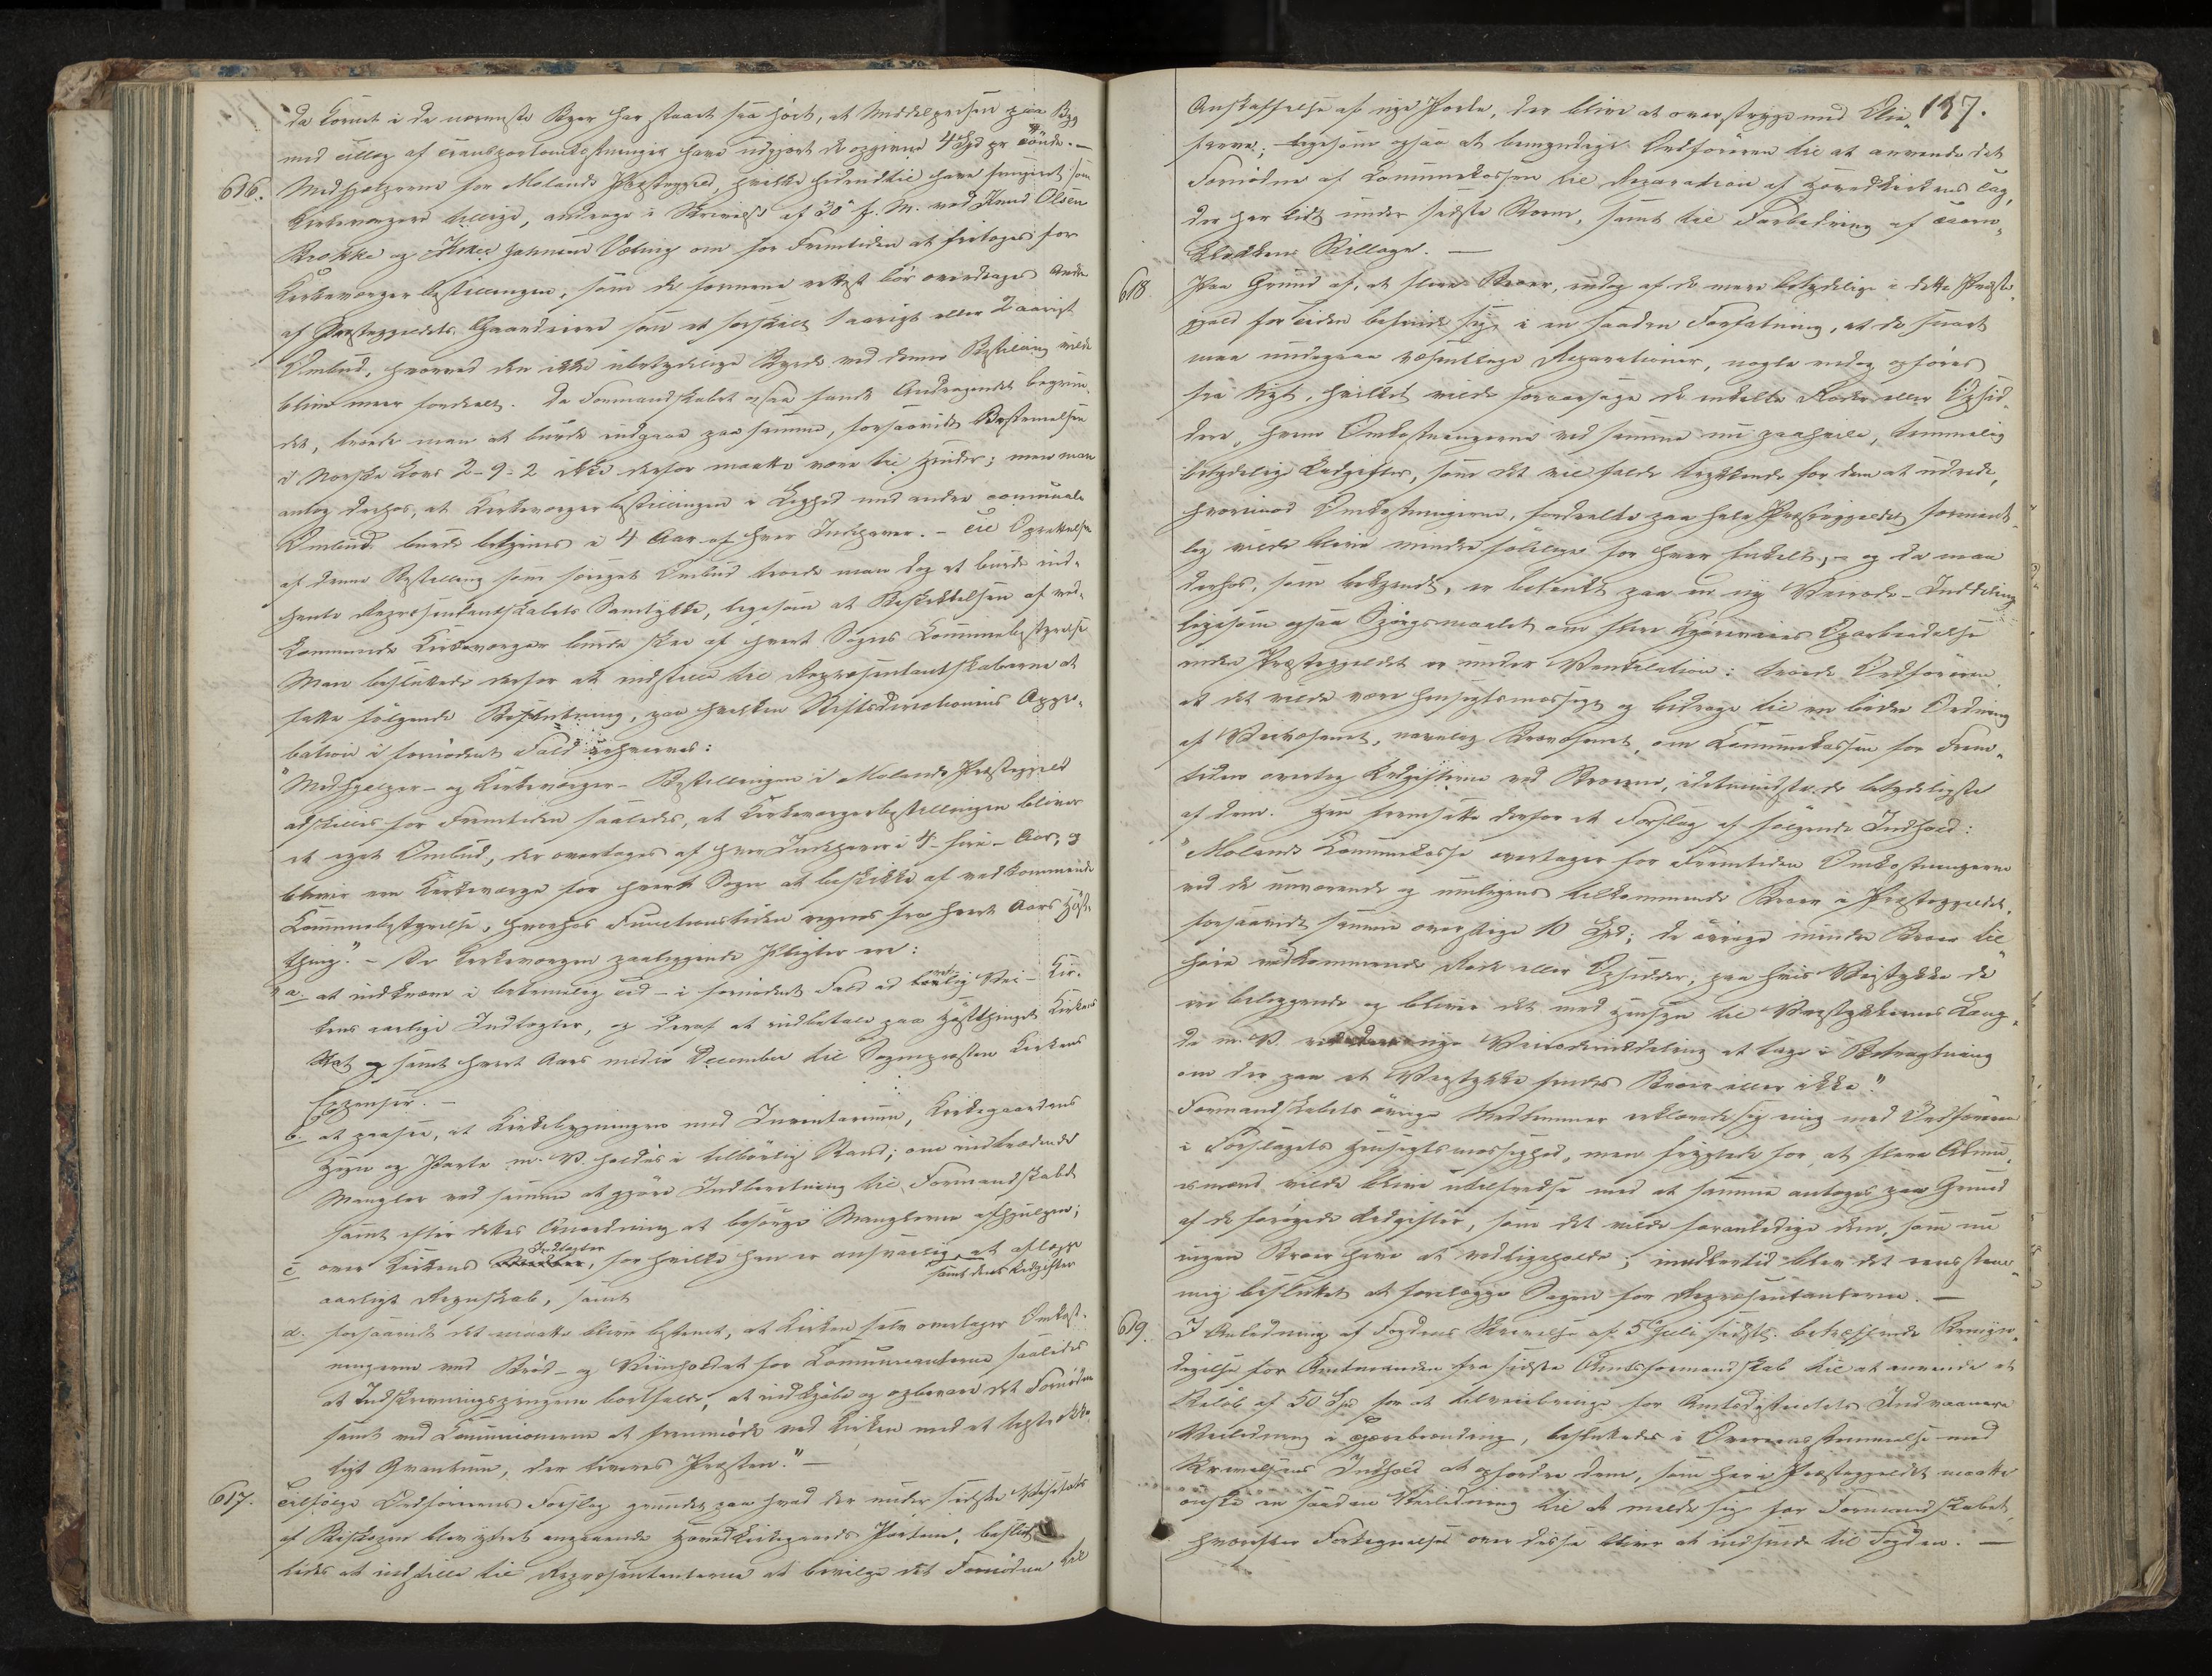 da Kornet i de nærmeste Byer har staaet saa høit, at Middelprisen paa Byg
med Tillæg af Transportomkostninger have udgjort de opgivne 4 Spd pr Tønde. —
616. Medhjælperne for Molands Præstegjeld, hvilke hidindtil have fungeret som
Kirkeværgere tillige, andrage i Skrivelse af 30te f. M. ved Knud Olsen
Brække og Johannes om for Fremtiden at fritages for
Kirkeværger Bestillingen, som de formene rettest bør overdrages Andre
af Præstegjeldets Gaardmænd som et særskilt 1 aarigt eller 2 aarigt
Ombud, hvorved den ikke ubetydelige Byrde ved denne Bestilling vilde
blive meer fordeelt. Da Formandskabet ogsaa fandt Andragendet begrun-
det, troede man at burde indgaae paa samme, forsaavidt Bestemmelsen
i Norske Lovs 2-9-2 ikke derfor maatte være til Hinder; men man
antog derhos, at Kirkeværgerbestillingen i Lighed med andre communale
Ombud burde betjenes i 4 Aar af hver Indehaver. — Til Oprettelse
af denne Bestilling som særeget Ombud troede man dog at burde ind-
hente Repræsentantskabets Samtykke, ligesom at Beskikkelsen af ved-
kommende Kirkeværger burde skee af hvert Sogns Communebestyrelse
Man besluttede derfor at indstille til Repræsentantskaberne at
fatte følgende Beslutning, paa hvilken Stiftsdirectionens Appro-
bation i fornødent Fald erhverves:
"Medhjælper- og Kirkeværger-Bestillingen i Molands Præstegjeld
adskilles for Fremtiden saaledes, at Kirkeværgerbestillingen bliver
et eget Ombud, der overtages af hver Indehaver i 4 - fire - Aar, og
bliver een Kirkeværge for hvert Sogn at beskikke af vedkommende
Communebestyrelse, hvorhos Functionstiden regnes fra hvert Aars Høst-
thing." — De Kirkeværgen paaliggende Pligter ere:
"a. at indkræve i betimelig Tid - i fornødent Fald ad retslig Vei - Kir-
kens aarlige Indtægter, og deraf at indbetale paa Høstthinget Kirkens
Skat og samt hvert Aars medio December til Sognepræsten Kirkens
Expenser. —
b. at paasee, at Kirkebygningen med Inventarium, Kirkegaardens
Hegn og Porte m. V. holdes i tilbørlig Stand; om indtrædende
Mangler ved samme at gjøre Indberetning til Formandskabet
samt efter dettes Anordning at besørge Manglerne afhjulpen;
c. over Kirkens Indtægter, for hvilke han er ansvarlig, samt dens Udgifter at aflægge
aarligt Regnskab, samt
d. forsaavidt det maatte blive bestemt, at Kirken selv overtager Omkost-
ningerne ved Brød- og Viinholdet for Communicanterne saaledes
at Indskrivningspengene bortfalde, at indkjøbe og opbevare det Fornødne
samt ved Communionerne at fremmøde ved Kirken med et tilstrække-
ligt Qvantum, der leveres Præsten." —
617. Tilfølge Ordførerens Forslag grundet paa hvad der under sidste Visitats
af Biskopen blev yttret angaaende Hovedkirkegaards Portene, beslut-
tedes at indstille til Repræsentanterne at bevilge det Fornødne til
197.
Anskaffelse af nye Porte, der blive at overstryge med Olie-
farve; ligesom ogsaa at bemyndige Ordføreren til at anvende det
Fornødne af Communekassen til Reparation af Hovedkirkens Tag,
der har lidt under sidste Storm, samt til Forbedring af Taarn-
klokkens Stillage. —
618. Paa Grund af, at flere Broer, endog af de mere betydelige i dette Præste-
gjeld for Tiden befinde sig i en saadan Forfatning, at de snart
maa undergaae væsentlige Reparationer, nogle endog opføres
fra Nyt, hvilket vilde foraarsage de enkelte Roder eller Opsid-
dere, hvem Omkostningerne ved samme nu paahvile, temmelig
betydelige Udgifter, som det vil falde trykkende for dem at udrede,
hvorimod Omkostningerne, fordeelte paa hele Præstegjeldet forment-
lig vilde blive mindre følelige for hver Enkelt; - og da man
derhos, som bekjendt, er betænkt paa en ny Veirode-Inddeling
ligesom ogsaa Spørgsmaalet om flere Kjøreveies Oparbeidelse
inden Præstegjeldet er under Ventilation: troede Ordføreren
at det vilde være hensigtsmæssigt og bidrage til en bedre Ordning
af Veivæsenet, navnlig Brovæsenet, om Communekassen for Frem-
tiden overtog Udgifterne ved Broerne, idetmindste de betydeligste
af dem. Han fremsatte derfor et Forslag af følgende Indhold:
"Molands Communekasse overtager for Fremtiden Omkostningerne
ved de nuværende og muligens tilkommende Broer i Præstegjeldet,
forsaavidt samme overstige 10 Spd; de øvrige mindre Broer til-
høre vedkommende Rode eller Opsidder, paa hvis Veistykke de
ere beliggende og bliver det med Hensyn til Veistykkernes Læng-
de m. V. ved nye Veirodeinddeling at tage i Betragtning
om der paa et Veistykke findes Broer eller ikke."
Formandskabets øvrige Medlemmer erklærede sig enig med Ordføreren
i Forslagets Hensigtsmæssighed, men frygtede for, at flere Almu-
esmænd vilde blive utilfredse med at samme antoges paa Grund
af de forøgede Udgifter, som det vilde foranledige dem, som nu
ingen Broer have at vedligeholde; imidlertid blev det eensstem-
mig besluttet at forelægge Sagen for Repræsentanterne. —
619. I Anledning af Fogdens Skrivelse af 5te Juli sidstl. betræffende Bemyn-
digelse for Amtmanden fra sidste Amtsformandskab til at anvende et
Beløb af 50 Spd for at tilveiebringe for Amtsdistrictets Indvaanere
Veiledning i Tjærebrænding, besluttedes i Overeensstemmelse med
Skrivelsens Indhold at opfordre dem, som her i Præstegjeldet maatte
ønske en saadan Veiledning til at melde sig for Formandskabet,
hvorefter Fortegnelse over disse bliver at indsende til Fogden. —